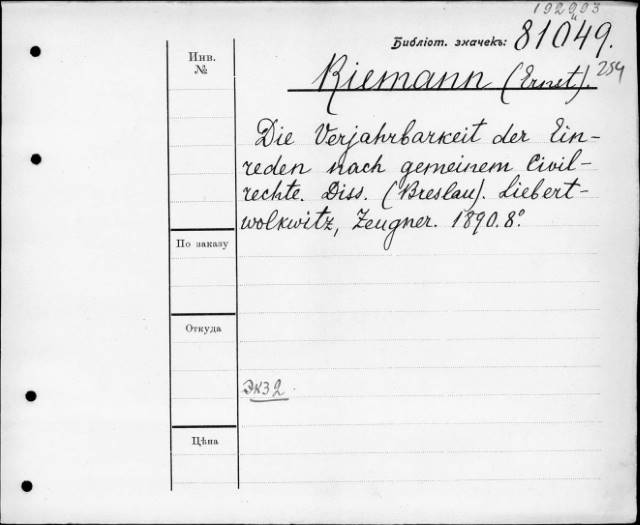 192903
Библіот. значекъ: 81049.
Инв.
№
Riemann (Ernst). 254
Die Verjahrbarkeit der Ein-
reden nach gemeinem Civil-
rechte. Diss. (Breslau). Liebert-
wolkwitz, Zeugner. 1890. 8°.
По заказу
Откуда
Экз 2
Цѣна